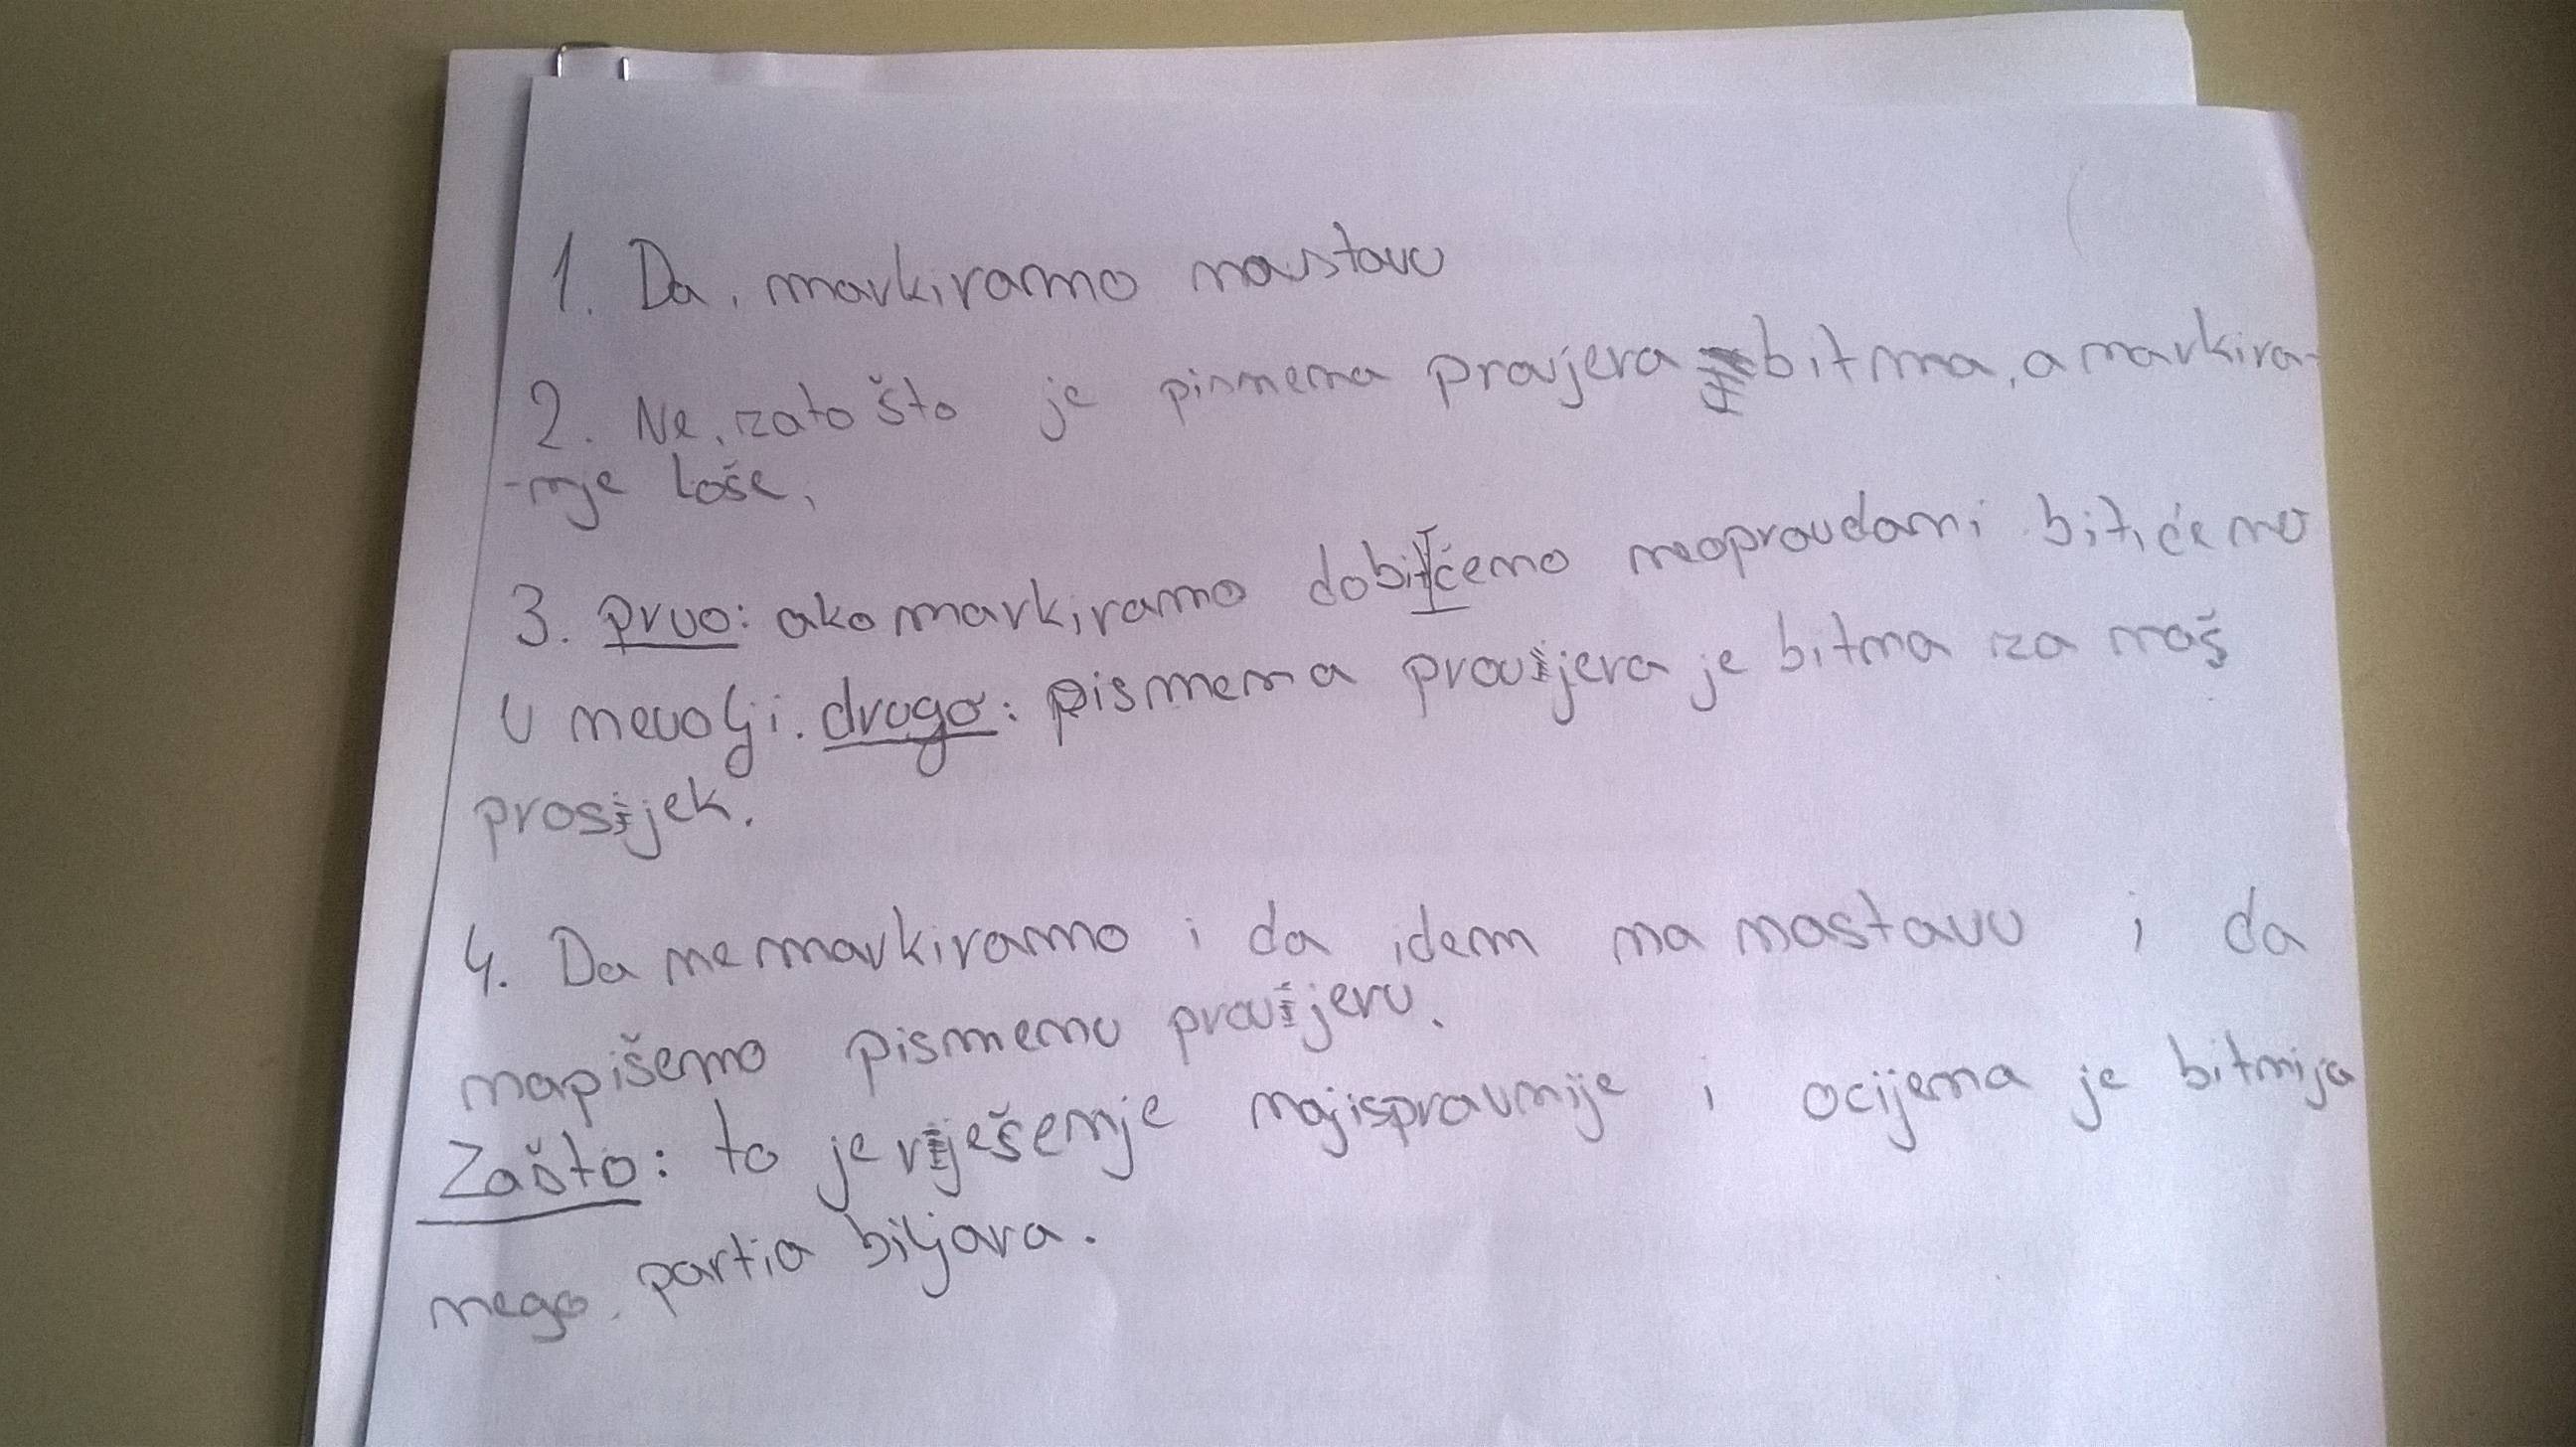 1. Da, markiramo naustavu
2. Ne, zato što je pismena provjera bitna, a markira-
-nje loše,
3. prvo: ako markiramo dobitćemo neopravdani bitićemo
u nevolji. drugo: pismena provjera je bitna za naš
prosjek.
4. Da ne markiramo i da idem na nastavu i da
napišemo pismenu provjeru.
Zašto: to je rješenje najispravnije i ocijena je bitnija
nego partia biljara.